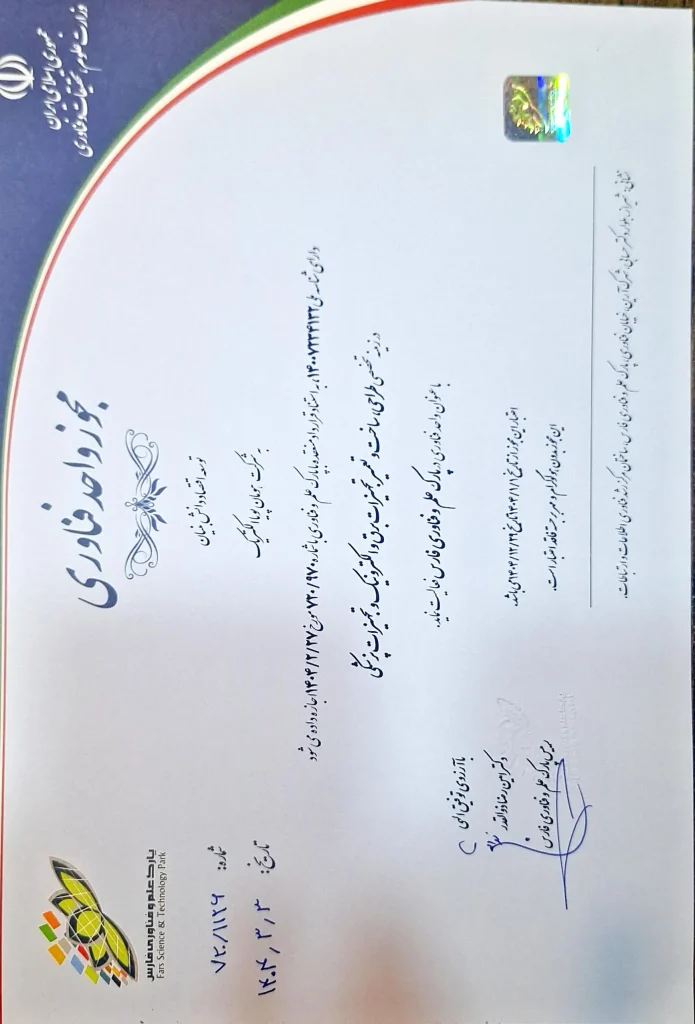 جمهوری اسلامی ایران
وزارت علوم، تحقیقات و فناوری
مجوز واحد فناوری
پارک علم و فناوری فارس
Fars Science & Technology Park
شماره: ۷۲۰/۱۱۲۶
تاریخ: ۱۴۰۴/۳/۳
توسعه اقتصاد دانش بنیان
به شرکت جهان پویا الکتریک
دارای شناسه ملی ۱۴۰۰۷۲۳۴۱۳۲، به استناد قرارداد منعقده با پارک علم و فناوری با شماره ۷۲۰/۹۷۰ مورخ ۱۴۰۴/۲/۲۷ اجازه داده می شود
در زمینه تخصصی طراحی، ساخت و تعمیر تجهیزات برق و الکترونیک و تجهیزات پزشکی
با عنوان واحد فناوری در پارک علم و فناوری فارس فعالیت نماید.
اعتبار این مجوز از تاریخ ۱۴۰۴/۱/۱ تا تاریخ ۱۴۰۴/۱۲/۲۹ می باشد.
این مجوز بدون هولوگرام و مهر برجسته فاقد اعتبار است.
با آرزوی توفیق الهی
دکتر امین رضا ذوالقدر
رییس پارک علم و فناوری فارس
نشانی: شیراز، بلوار دکتر حسابی، شهرک آرین، خیابان فناوری، پارک علم و فناوری فارس، ساختمان مرکز رشد فناوری اطلاعات و ارتباطات.